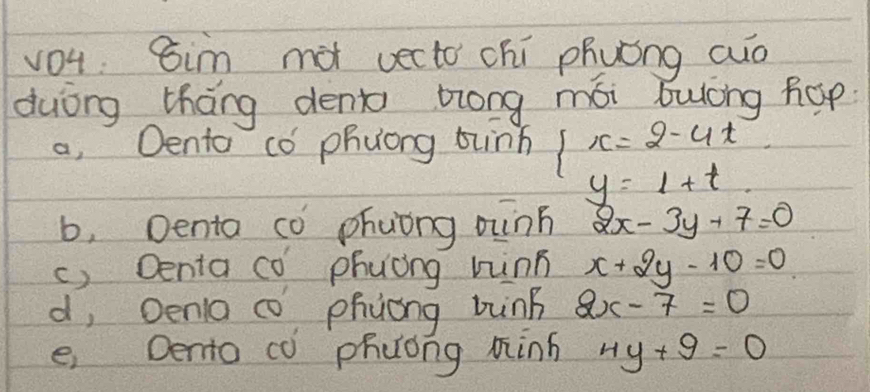 VD4: Tìm một vectơ chỉ phương của
đường thẳng denta trong mỗi trường hợp:
a, Denta có phương trình { x = 2 - 4t
y = 1 + t
b, Denta có phương trình 2x - 3y + 7 = 0
c, Denta có phương trình x + 2y - 10 = 0
d, Denta có phương trình 2x - 7 = 0
e, Denta có phương trình 4y + 9 = 0